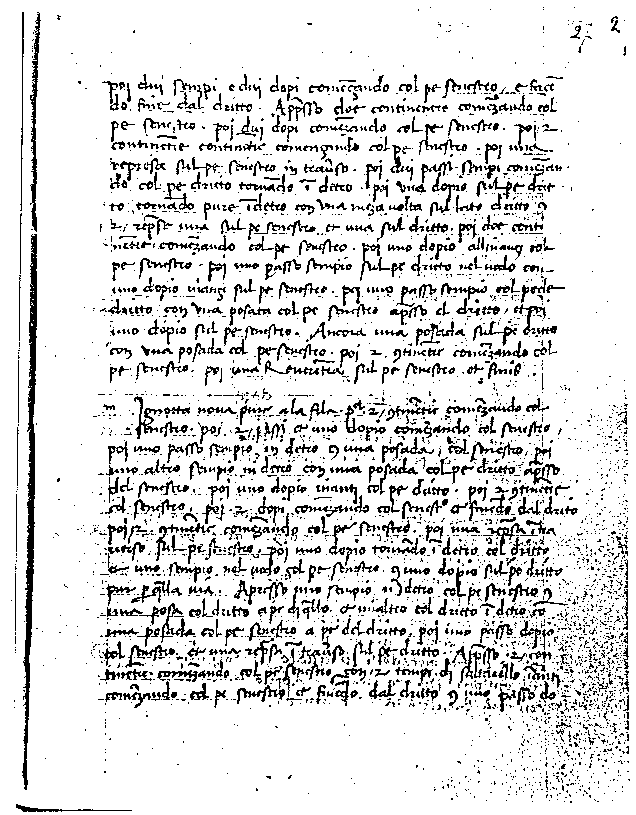 2 2
poi dui senpi e dui dopi comēzando col pe senestro, e facē
do fine dal dritto. Apṕsso doe continentie comēzando col
pe senestro. poi dui dopi comēzando col pe senestro. poi 2
continētie continētie comenzando col pe senestro. poi una
represa sul pe senestro in trauso. poi dui passi senpi comēzan
do col pe dritto tornādo ī detro. poi una dopio sul pe drit
to tornādo pure ī detro con una meza volta sul lato dritto 9
2 repse una sul pe senestro, et una sul dritto. poi doe conti
nētie comēzando col pe senestro. poi uno dopio allinanzi col
pe senestro. poi uno passo sempio sul pe dritto nel uodo con
uno dopio sul pe senestro. poi uno passo sempio col pede
dritto con una posata col pe senestro apṕsso el dritto, et poi
uno dopio sul pe senestro. Ancora una posada sul pe dritto
con una posada col pe senestro. poi 2 9tinētie comēzando col
pe senestro. poi una Reuerētia sul pe senestro. et finis.
Ignotta nova pure a la fila 2 9tinētie comēzando col
senestro. poi 2 passi e uno dopio comēzando col senestro,
poi uno passo senpio in detro 9 una posada col senestro, poi
uno altro senpio in detro con una posada col pe dritto apṕsso
del senestro. poi uno dopio inanti col pe dritto. poi 2 9tinētie
col senestro. poi 2 dopi comēzando col senestro e finēdo dal dritto
poi 2 9tinētie comēzando col pe senestro. poi una repsa ī tra
uerso sul pe senestro, poi uno dopio tornādo ī detro col dritto
et uno senpio nel uodo col pe senestro. 9 uno dopio sul pe dritto
pur p q̄lla uia. Apresso uno senpio ī detro col pe senestro 9
una posa col dritto a pe di q̄llo. et unaltro col dritto ī detro cō
una posada col pe senestro a pe del dritto, poi uno passo dopio
col senestro, et una repsa ī trauso sul pe dritto. Apṕsso 2 con
tinētie comēzando col pe senestro con 2 tempi di saltarello inanti
comēzando col pe senestro e finēdo dal dritto 9 uno passo do